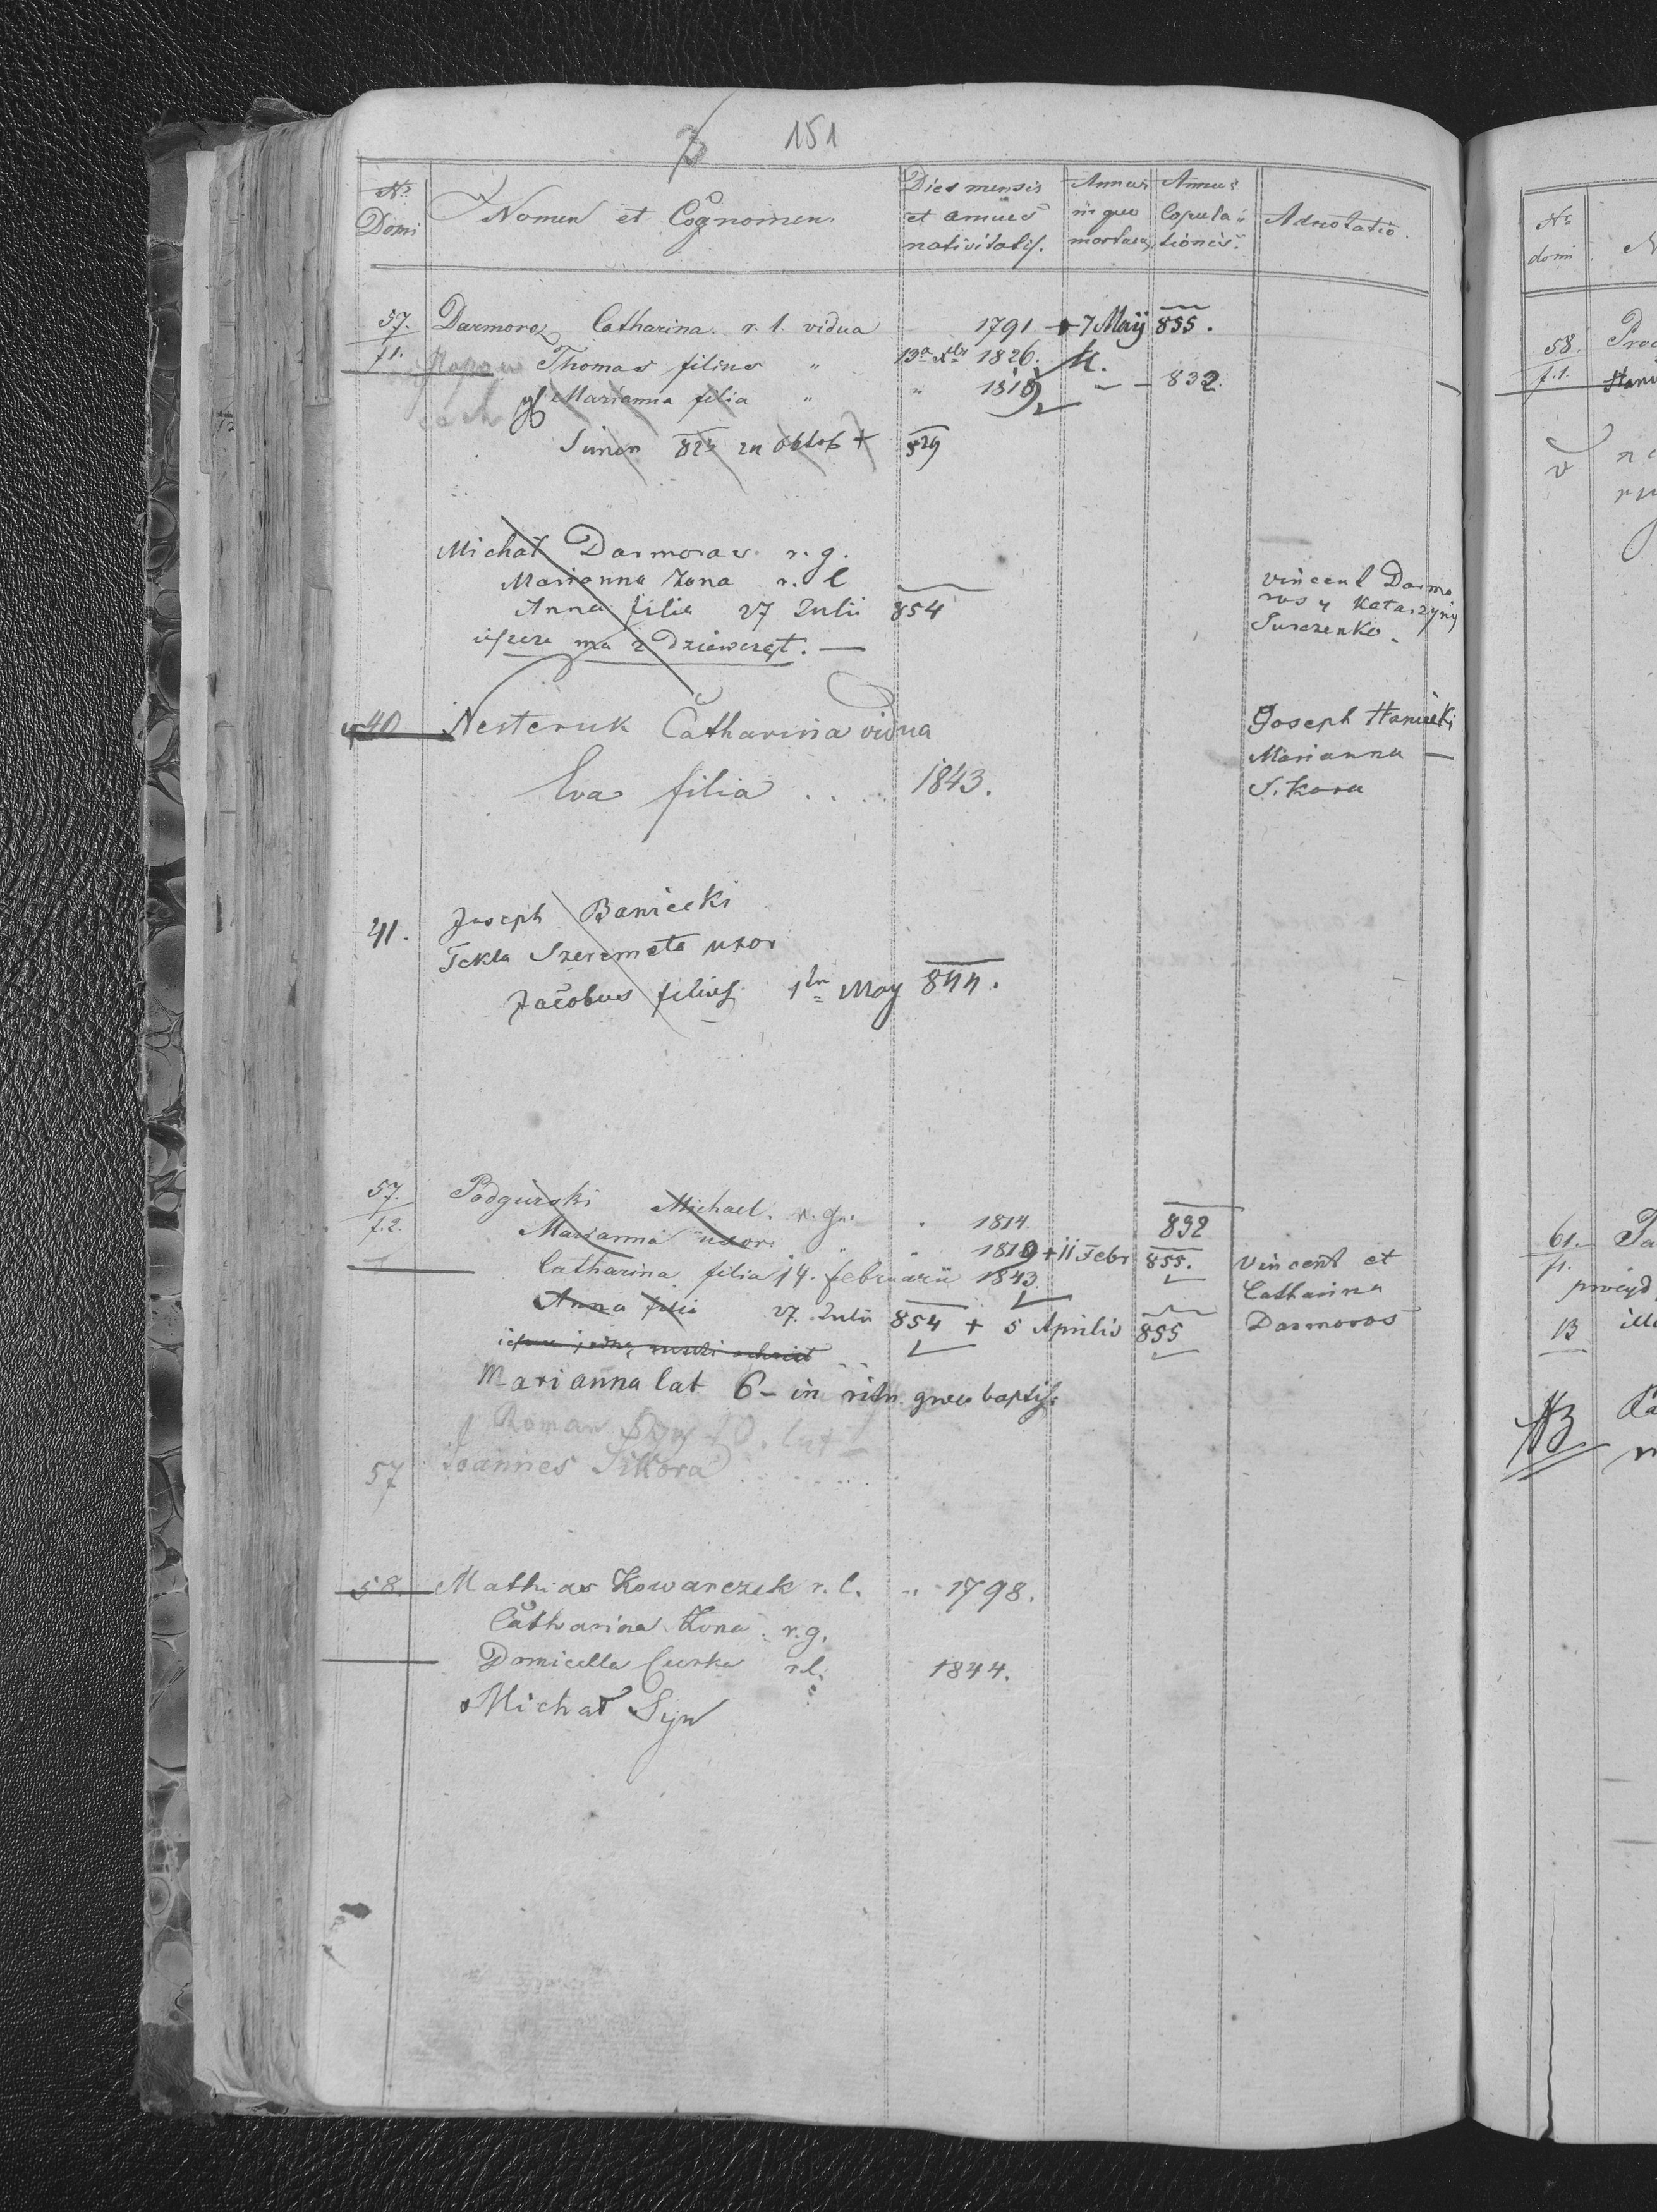 151
Nro Domi Nomen et Cognomen. Dies mensis et annus nativitatis. Annus in quo mortuus Annus Copulationis. Adnotatio.
57. f1. Darmoroz Catharina r. l. vidua 1791 + 7 Maij 855.
Thomas filius " 13a Xbr 1826.
Marianna filia " " 1819 - - 832.
Simon 823 Oktob + 829
Michał Darmoraz r. g.
Marianna Żona r. l
Anna filia 27 Julii 854
ma 2 dziewcząt. —
Vincent Darmo
ros y Katarzyny
Surczenko.
40 Nesteruk Catharina vidua
Eva filia . . . . 1843.
Joseph Haniecki
Marianna —
Sikora
41. Joseph Baniecki
Tekla Szeremeta uxor
Jacobus filius 1ta May 844.
57. f.2. Podgurski Michael. r. gr. " 1814. 832
Marianna uxor " " 1819 + 11 Febr 855.
Catharina filia 14. februarii 1843
Anna filia 27. Julii 854 + 5 Aprilis 855
Vincent et
Catharina
Darmoros
Marianna lat 6 - in ritu greco baptis.
Roman Syn 10. lat
57 Joannes Sikora . . . . . . .
58. Mathias Kowarczuk r. l. " 1798.
Catharina Żona r. g.
Domicella Curka r l. 1844.
Michał Syn
No domi N
58. f.1.
61. f1.
13